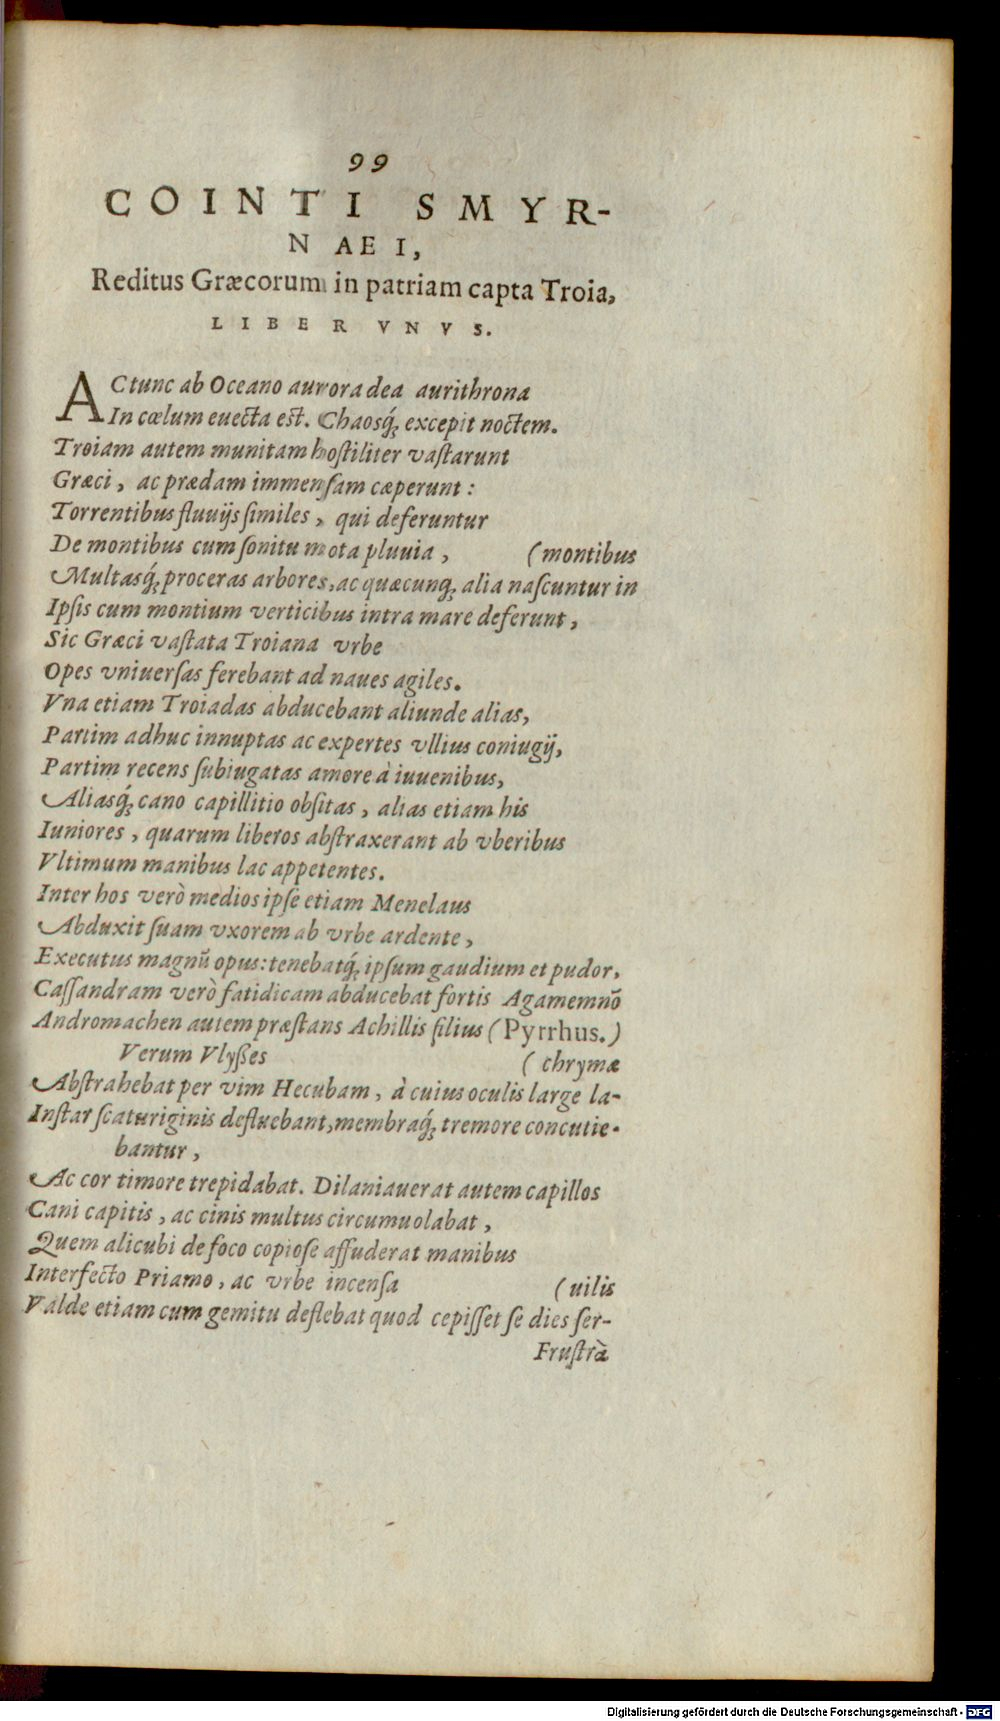 99
COINTI SMYR-
NAEI,
Reditus Græcorum in patriam capta Troia,
LIBER VNVS.
ACtunc ab Oceano aurora dea aurithrona
In cœlum euecta est. Chaosq́; excepit noctem.
Troiam autem munitam hoſtiliter vaſtarunt
Græci, ac prædam immenſam cæperunt:
Torrentibus fluuijs ſimiles, qui deferuntur
De montibus cum ſonitu mota pluuia, (montibus
Multasq́; proceras arbores, ac quæcunq; alia naſcuntur in
Ipſis cum montium verticibus intra mare deferunt,
Sic Græci vaſtata Troiana vrbe
Opes vniuerſas ferebant ad naues agiles.
Vna etiam Troiadas abducebant aliunde alias,
Partim adhuc innuptas ac expertes vllius coniugij,
Partim recens ſubiugatas amore à iuuenibus,
Aliasq́; cano capillitio obſitas, alias etiam his
Iuniores, quarum liberos abſtraxerant ab vberibus
Vltimum manibus lac appetentes.
Inter hos verò medios ipſe etiam Menelaus
Abduxit ſuam vxorem ab vrbe ardente,
Executus magnũ opus: tenebatq́; ipſum gaudium et pudor,
Caſſandram verò fatidicam abducebat fortis Agamemnõ
Andromachen autem præſtans Achillis filius (Pyrrhus.)
Verum Vlyßes (chrymæ
Abſtrahebat per vim Hecubam, à cuius oculis large la-
Inſtar ſcaturiginis defluebant, membraq́; tremore concutie-
bantur,
Ac cor timore trepidabat. Dilaniauerat autem capillos
Cani capitis, ac cinis multus circumuolabat,
Quem alicubi de foco copioſe affuderat manibus
Interfecto Priamo, ac vrbe incenſa (uilis
Valde etiam cum gemitu deflebat quod cepiſſet ſe dies ſer-
Fruſtrà
Digitalisierung gefördert durch die Deutsche Forschungsgemeinschaft - DFG